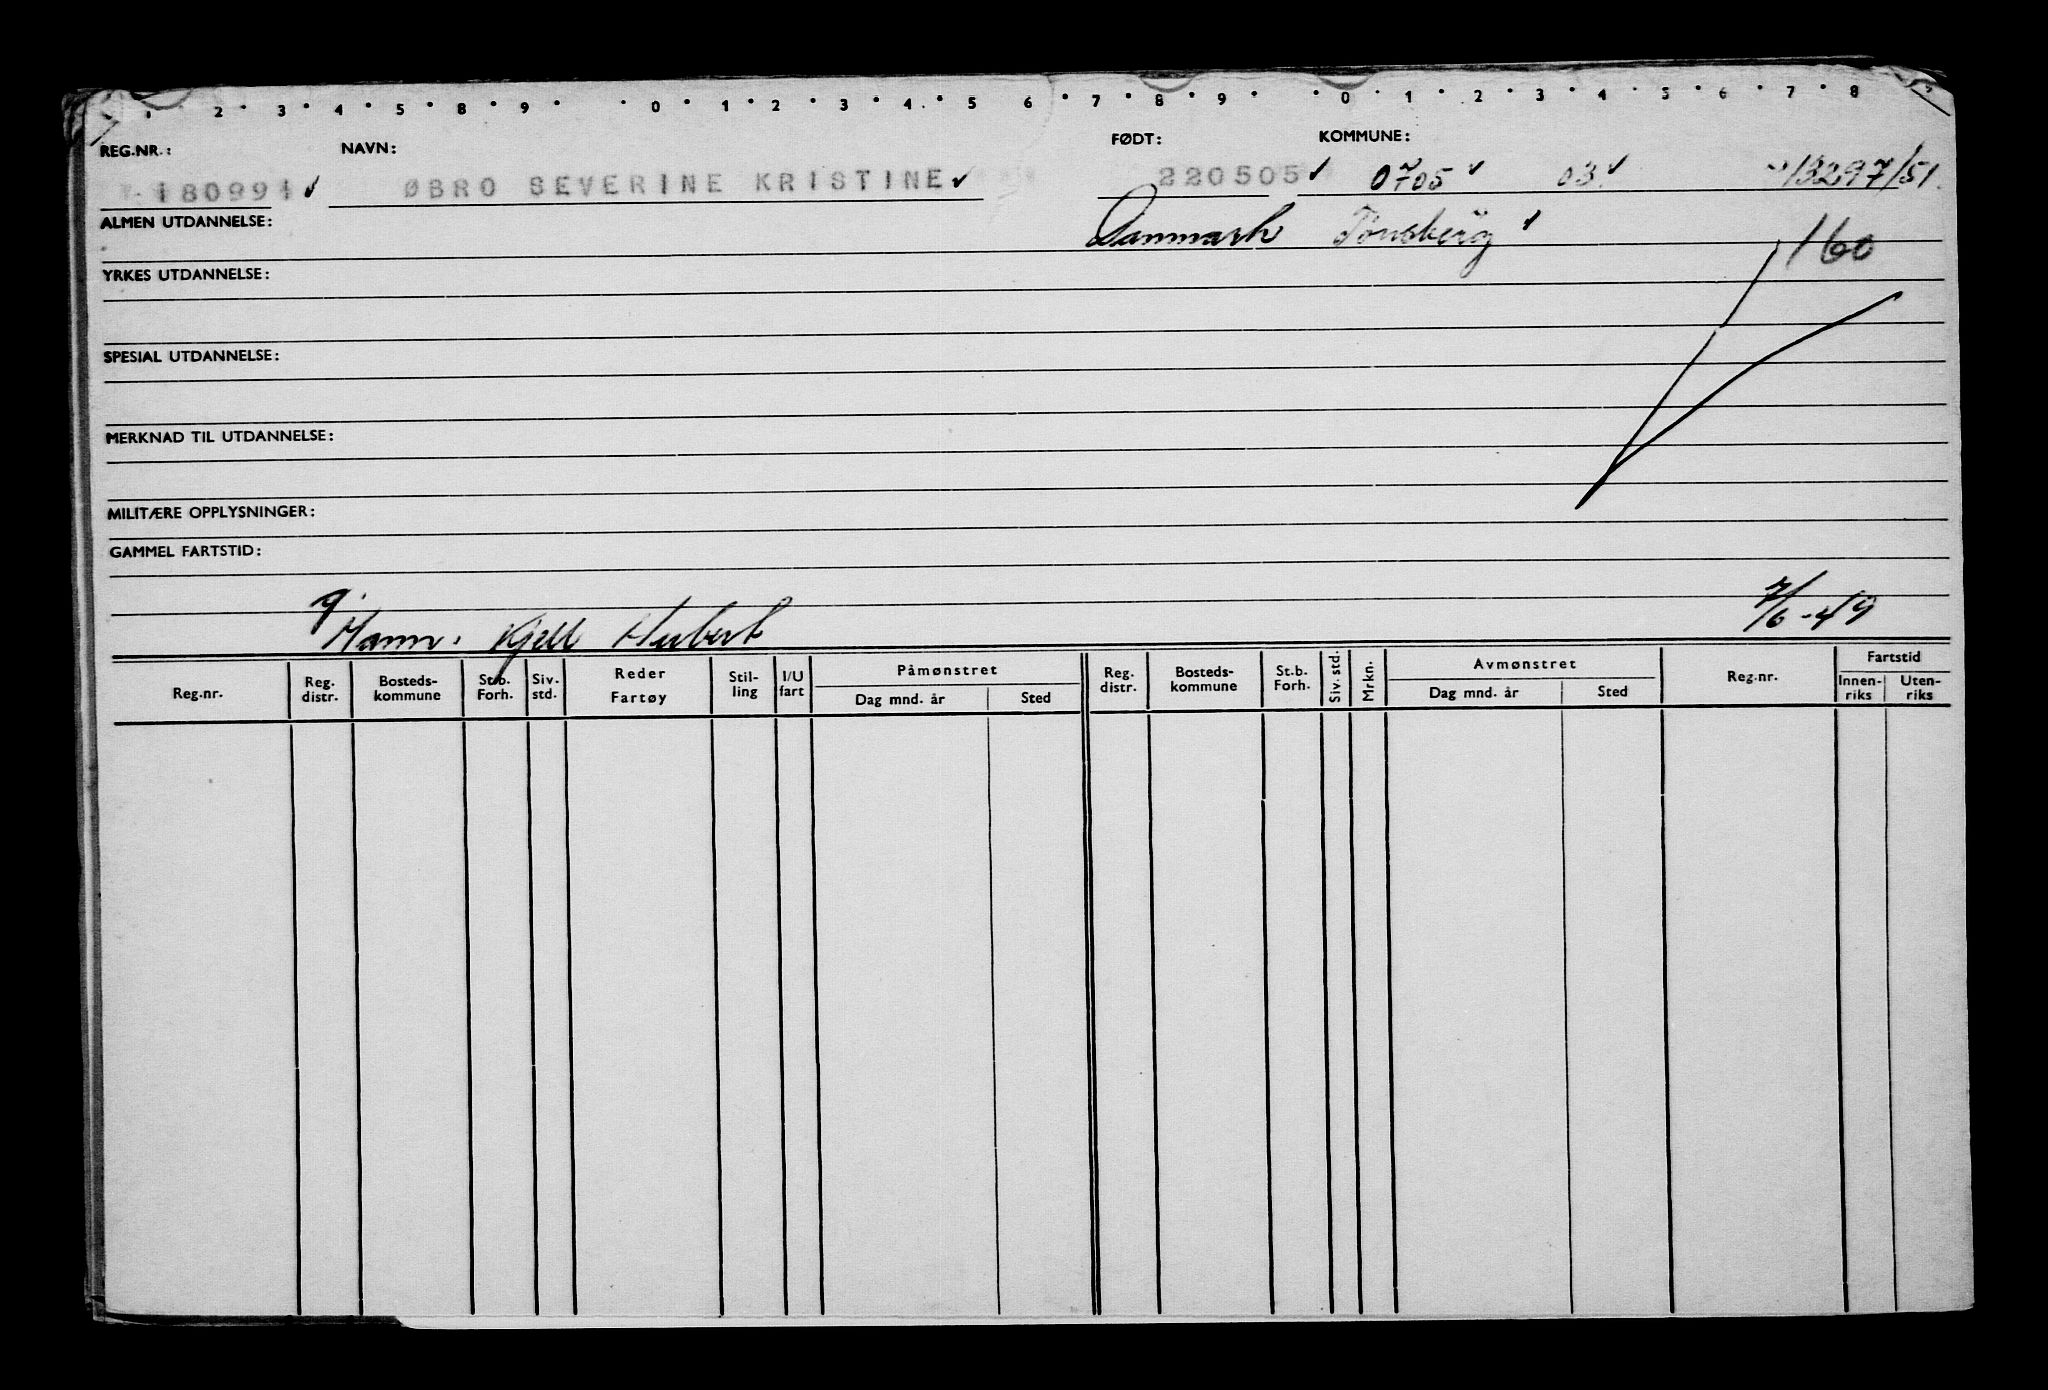 1 2 3 4 5 6 8 9 0 1 2 3 4 5 6 7 8 9 0 1 2 3 4 5 6 7 8 9
REG.NR.: NAVN: FØDT: KOMMUNE:
180991 ØBRO SEVERINE KRISTINE 220505 0705 03 13297/51
ALMEN UTDANNELSE: Danmark Tönsberg 160
YRKES UTDANNELSE:
SPESIAL UTDANNELSE:
MERKNAD TIL UTDANNELSE:
MILITÆRE OPPLYSNINGER:
GAMMEL FARTSTID:
g. Mann: Kjell Herbert 7/6-49
Reg.nr. Reg. distr. Bosteds-kommune St.b. Forh. Siv. std. Reder Fartøy Stil-ling I/U fart Påmønstret Dag mnd. år Sted Reg. distr. Bosteds-kommune St.b. Forh. Siv. std. Mrkn. Avmønstret Dag mnd. år Sted Reg.nr. Fartstid Innen-riks Uten-riks